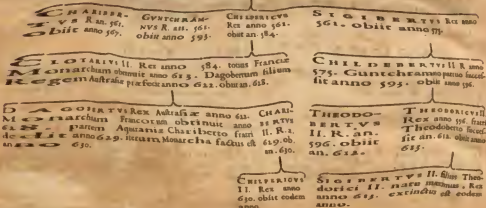 CHARIBER-
TVS R. an. 561.
obiit anno 567.
GVNTCHRAM-
NVS R. an. 561.
obiit an. 593.
CHILPERICVS
Rex anno 561.
obiit an. 584.
SIGIBERTVS Rex anno
561. obiit anno 575.
CLOTARIVS II. Rex anno 584. totius Franciæ
Monarchum obtinuit anno 613. Dagobertum filium
Regem Austrasiæ præfecit anno 622. obiit an. 628.
CHILDEBERTVS II R anno
575. Guntchranno patruo succes-
sit anno 593. obiit anno 596.
DAGOBERTVS Rex Austrasiæ anno 622.
Monarchum Francorum obtinuit anno
partem Aquitaniæ Chariberto fratri
anno 629. iterum Monarcha factus est
630.
CHARI-
BERTVS
II. R. a.
629. ob.
an. 630.
THEODO-
BERTVS
II. R. an.
596. obiit
an. 612.
THEODORICVS II.
Rex anno 596. fratri
Theodoberto succes-
sit an. 612. obiit anno
613.
CHILPERICVS
II. Rex anno
630. obiit eodem
anno.
SIGIBERTVS II. filius Theo-
dorici II. natu maximus, Rex
anno 613. extinctus est eodem
anno.